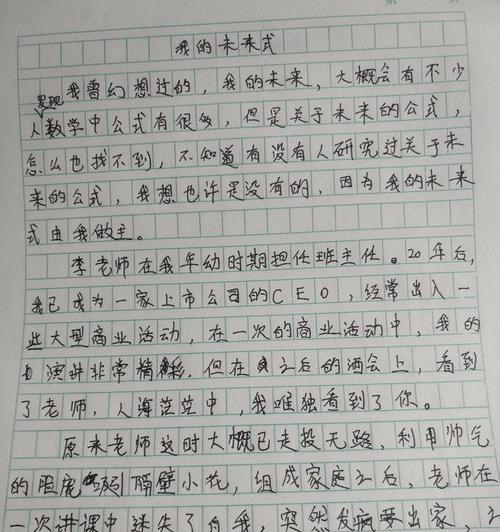 我的未来式
我曾幻想过的,我的未来,大概会有不少
发现
人数学中公式有很多,但是关于未来的公式,
怎么也找不到,不知道有没有人研究过关于未
来的公式,我想也许是没有的,因为我的未来
式由我做主。
李老师在我年幼时期担任班主任。20年后,
我已成为一家上市公司的CEO,经常出入一
些大型商业活动,在一次的商业活动中,我的
演讲非常精彩,但在之后的酒会上,看到
了老师,人海茫茫中,我唯独看到了你。
原来老师这时大概已走投无路,利用帅气
的脸庞 隔壁小花,组成家庭之后,老师在
一次讲课中迷失了自我,突然发疯要出家,